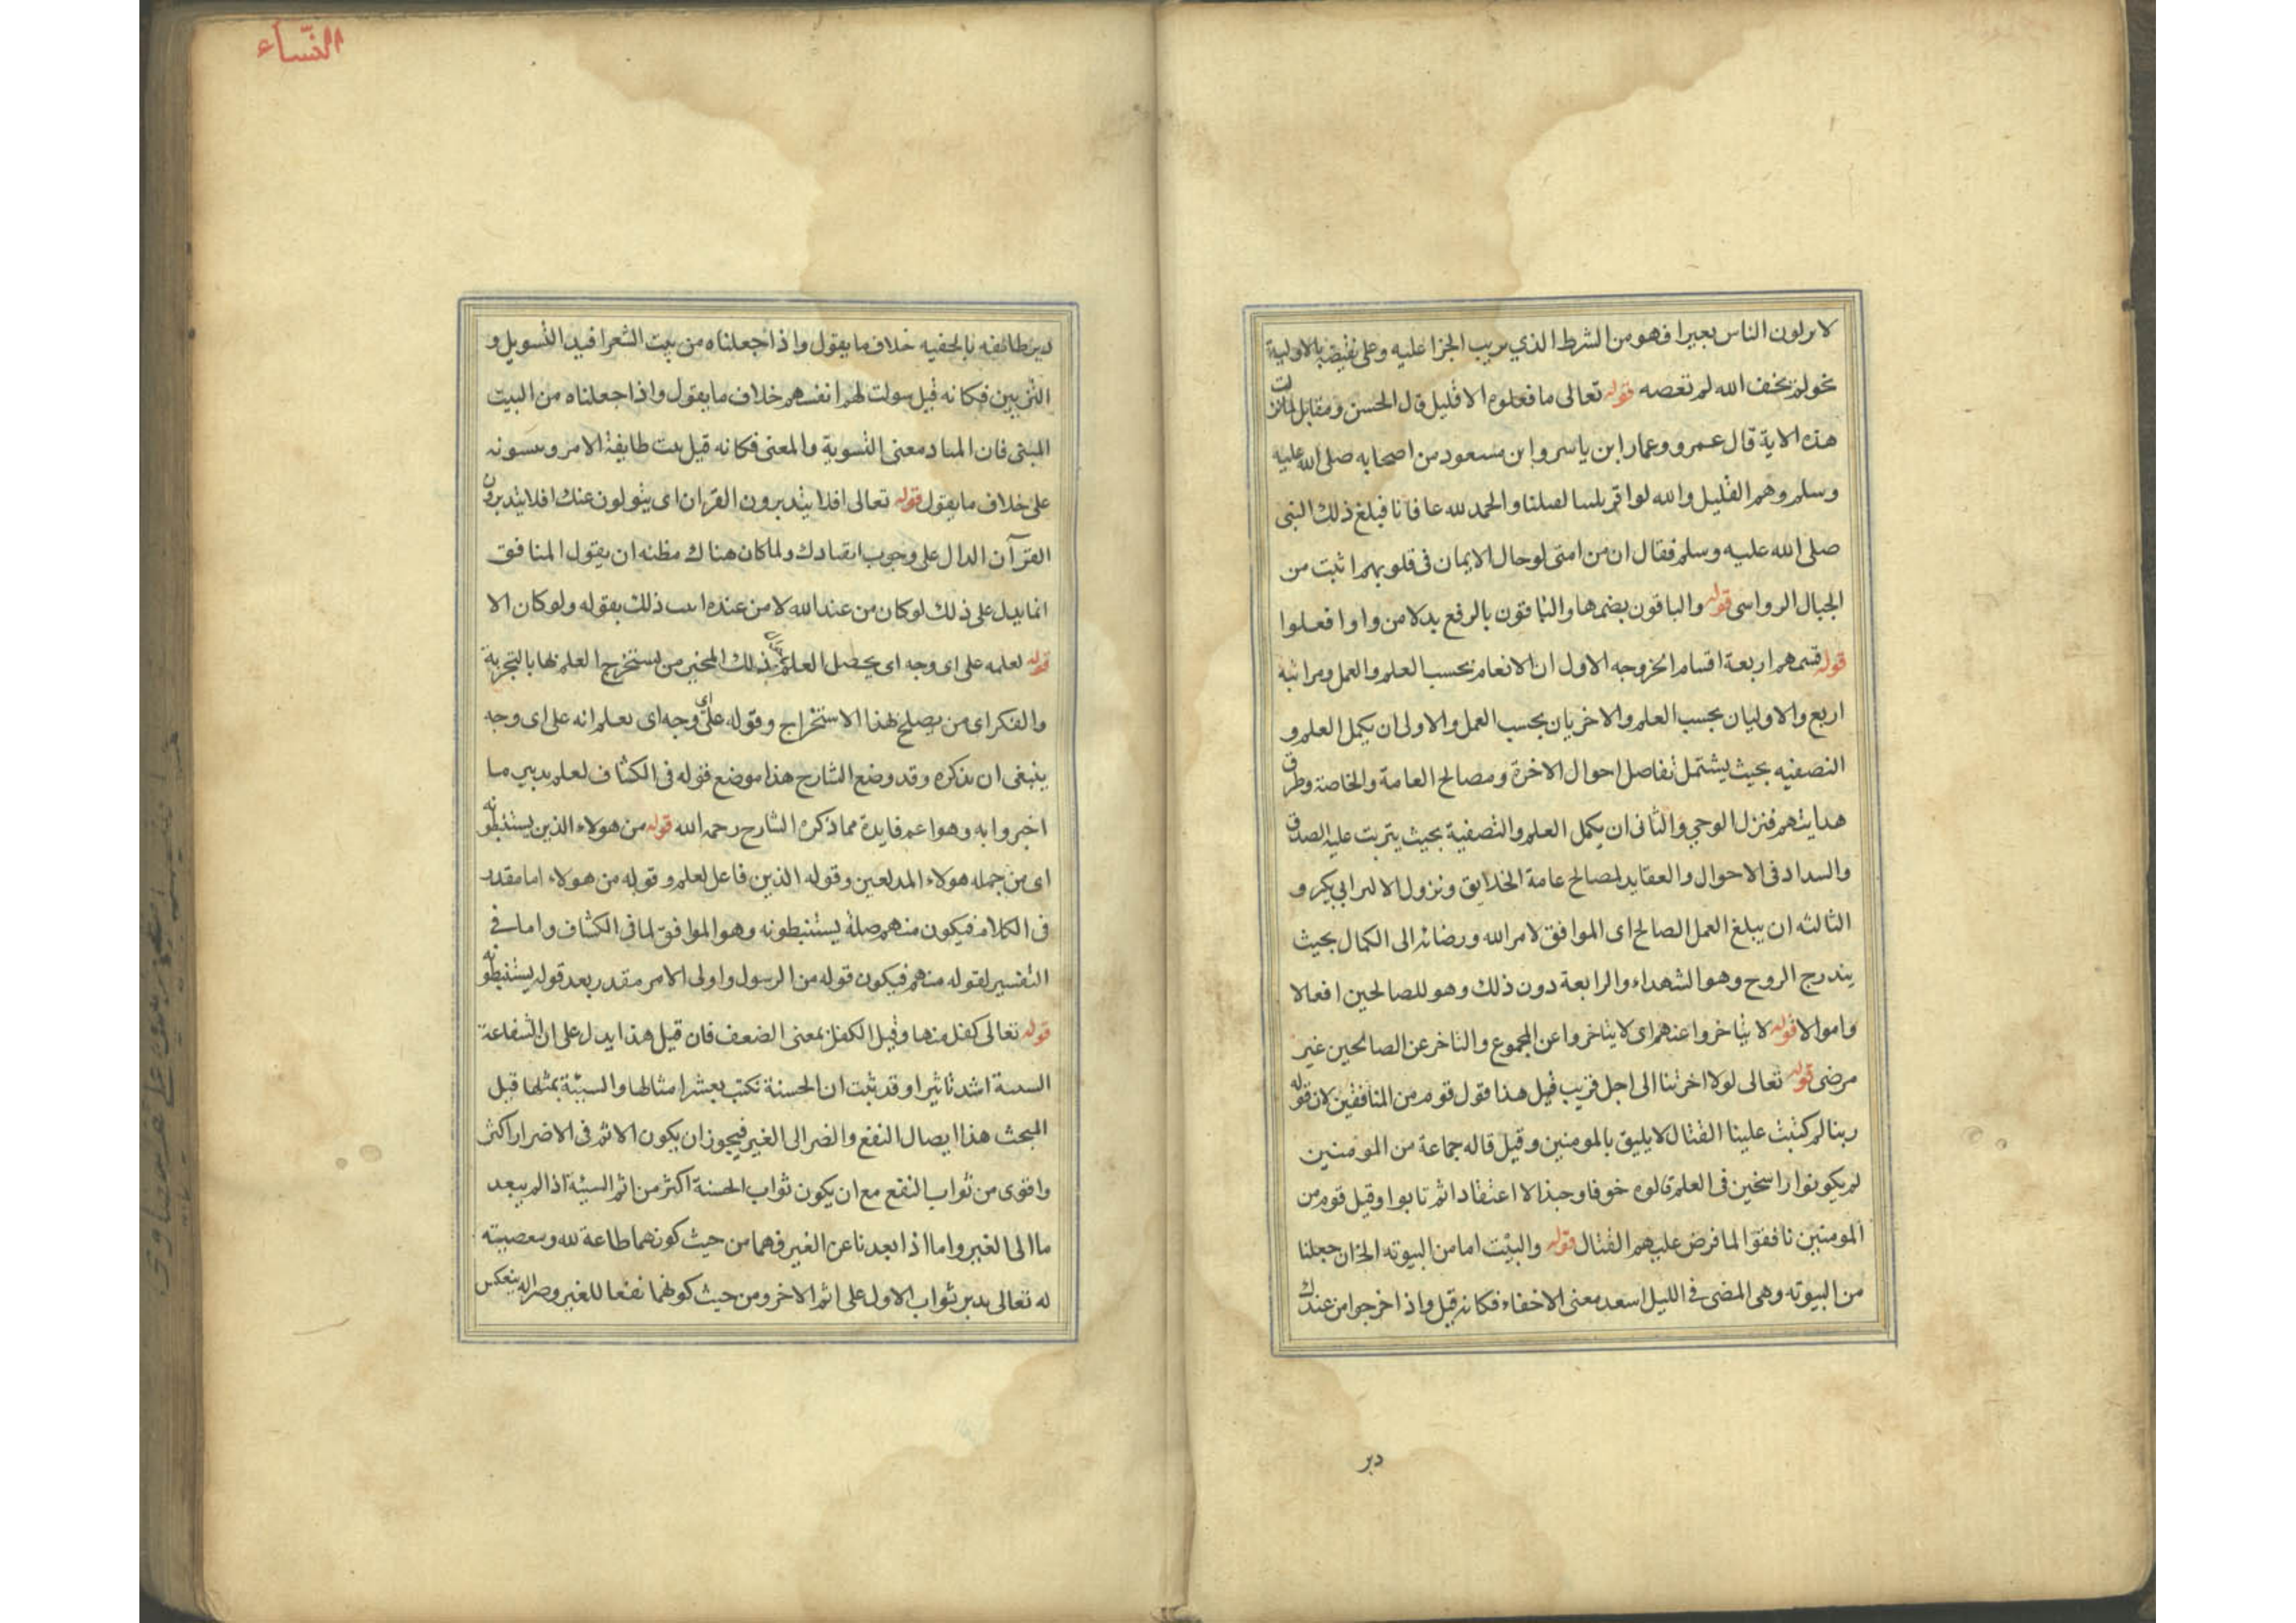 لا يرلون الناس بعيرا فهو من الشرط الذي يريب الجزا عليه وعلى نقيضه بالاولية
نحو لم يخف الله لم تعصه قوله تعالى ما فعلوه الا قليل قال الحسن ومقابل لما نزلت
هذه الاية قال عمرو وعمار ابن ياسر وابن مسعود من اصحابه صلى الله عليه
وسلم وهم القليل والله لو لفعلنا والحمد لله عافانا فبلغ ذلك النبى
صلى الله عليه وسلم فقال ان من امتى لوحال الايمان فى قلوبهم اثبت من
الجبال الرواسى قوله والباقون بضمها والباقون بالرفع بدلا من واو افعلوا
قوله قسمهم اربعة اقسام الخ وجه الاول ان الانعام بحسب العلم والعمل ومراتبه
اربع والاوليان بحسب العلم والاخريان بحسب العمل والاولى ان يكمل العلم و
النصفيه بحيث يشتمل تفاصل احوال الاخرة ومصالح العامة والخاصة وطرق
هدايتهم فنزل الوحي والثانى ان يكمل العلم والتصفية بحيث يتربت عليه الصدق
والسداد فى الاحوال والعقايد لمصالح عامة الخلايق ونزول ابى بكر و
الثالثه ان يبلغ العمل الصالح اى الموافق لامر الله ورضائه الى الكمال بحيث
يندرج الروح وهو الشهداء والرابعة دون ذلك وهو للصالحين افعالا
واموالا قوله لا يتاخروا عنهم اى لا يتاخروا عن المجموع والتاخر عن الصالحين غير
مرضى قوله تعالى لولا اخرتنا الى اجل قريب قيل هذا قول قوم من المنافقين لان قوله
ربنا لم كتبت علينا القتال لا يليق بالمومنين وقيل قاله جماعة من المومنين
لم يكونوا راسخين فى العلم قالوه خوفا وجبنا لا اعتقادا ثم تابوا وقيل قوم من
المومنين نافقوا لما فرض عليهم القتال قوله والبيت اما من البيوته الخ ان جعلنا
من البيوته وهى المضى فى الليل معنى الاخفاء فكانه قيل واذا خرجوا من عندك
دبر
النساء
دبر طائفه بالخفيه خلاف ما يقول واذا جعلناه من بيت الشعر افيد التسويل و
التزيين فكانه قيل سولت لهم انفسهم خلاف ما يقول واذا جعلناه من البيت
المبنى فان المباد معنى التسوية والمعنى فكانه قيل بيت طايفة الامر وىسونه
على خلاف ما يقول قوله تعالى افلا يتدبرون القران اى يتولون عنك افلا يتدبرون
القرآن الدال على وجوب انقيادك ولما كان هناك مظنه ان يقول المنافق
انما يدل على ذلك لو كان من عند الله لا من عنده ذلك بقوله ولو كان الا
قوله لعلمه على اى وجه اى يحصل العلم بذلك المخبر من يستخرج العلم بها بالتجربة
والفكر اى من يصلح لهذا الاستخراج وقوله على اى وجه اى يعلم انه على اى وجه
ينبغى ان يذكره وقد وضع الشارح هذا موضع قوله فى الكشاف لعلم تدبير ما
اخبروا به وهو اعم فايدة مما ذكره الشارح رحمه الله قوله من هولاء الذين يستنبطونه
اى من جمله هولاء المدلعين وقوله الذين فاعل لعلم وقوله من هولاء اما مقدر
فى الكلام فيكون منهم صلة يستنبطونه وهو الموافق لما فى الكشاف واما فى
التفسير لقوله منهم فيكون قوله من الرسول واولى الامر مقدر بعد قوله يستنبطونه
قوله تعالى كفل منها وقيل الكفل بمعنى الضعف فان قيل هذا يدل على ان الشفاعة
السىىة اشد تاثيرا وقد ثبت ان الحسنة تكتب بعشر امثالها والسيئة بمثلها قيل
المبحث هذا ايصال النفع والضر الى الغير فيجوز ان يكون الاثم فى الاضرار اكثر
واقوى من ثواب النفع مع ان يكون ثواب الحسنة اكثر من اثم السيئة اذا لم يبعد
ما الى الغير واما اذا بعدنا عن الغير فهما من حيث كونهما طاعة لله ومعصيته
له تعالى يدبر ثواب الاول على اثم الاخر ومن حيث كونهما نفعا للغير وضرا له ينعكس